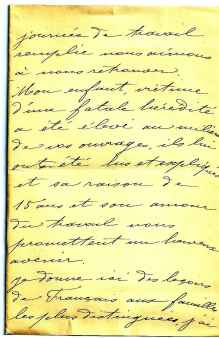 journées de travail
remplie nous aimons
à nous retrouver.
Mon enfant victime
d'une fatale hérédité
a été élevé au milieu
de vos ouvrages, ils lui
ont été lus et expliqués
et sa raison de
15 ans et son amour
du travail nous
promettent un heureux
avenir.
je donne ici des leçons
de Français aux familles
les plus distinguées, j'ai